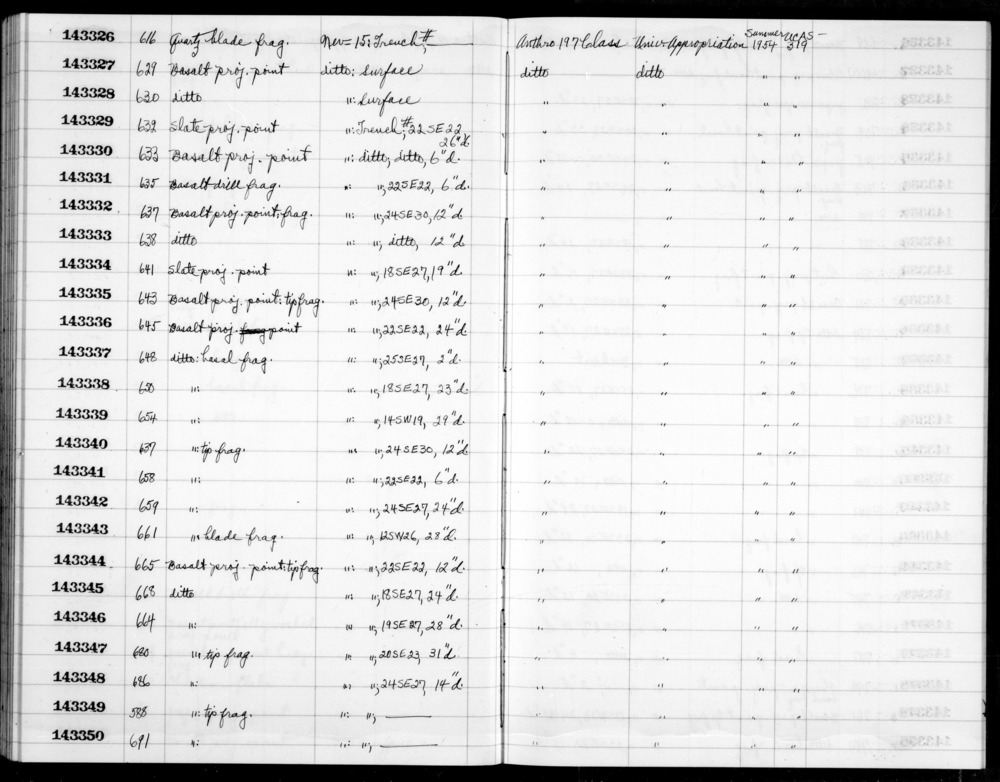 143326 616 Quartz blade frag. Nev-15: Trench # — Anthro 197 Class Univ. Appropriation Summer 1954 UCAS-319
143327 629 Basalt proj. point ditto: surface ditto ditto " "
143328 630 ditto ": surface " " " "
143329 632 Slate proj. point ": Trench #; 22SE22 26"d. " " " "
143330 633 Basalt proj. point ": ditto; ditto, 6"d. " " " "
143331 635 Basalt drill frag. ": "; 22SE22, 6"d. " " " "
143332 637 Basalt proj. point; frag. ": "; 24SE30, 12"d. " " " "
143333 638 ditto ": "; ditto, 12"d. " " " "
143334 641 Slate proj. point ": "; 18SE27, 19"d. " " " "
143335 643 Basalt proj. point: tip frag. ": "; 24SE30, 12"d. " " " "
143336 645 Basalt proj. point ": "; 22SE22, 24"d. " " " "
143337 648 ditto: basal frag. ": "; 25SE27, 2"d. " " " "
143338 650 ": ": "; 18SE27, 23"d. " " " "
143339 654 ": ": "; 14SW19, 29"d. " " " "
143340 657 ": tip frag. ": "; 24SE30, 12"d. " " " "
143341 658 ": ": "; 22SE22, 6"d. " " " "
143342 659 ": ": "; 24SE27, 24"d. " " " "
143343 661 ": blade frag. ": "; 12SW26, 28"d. " " " "
143344 665 Basalt proj. point: tip frag. ": "; 22SE22, 12"d. " " " "
143345 668 ditto ": "; 18SE27, 24"d. " " " "
143346 664 ": ": "; 19SE27, 28"d. " " " "
143347 680 ": tip frag. ": "; 20SE23, 31"d. " " " "
143348 686 ": ": "; 24SE27, 14"d. " " " "
143349 588 ": tip frag. ": "; — " " " "
143350 691 ": ": "; — " " " "